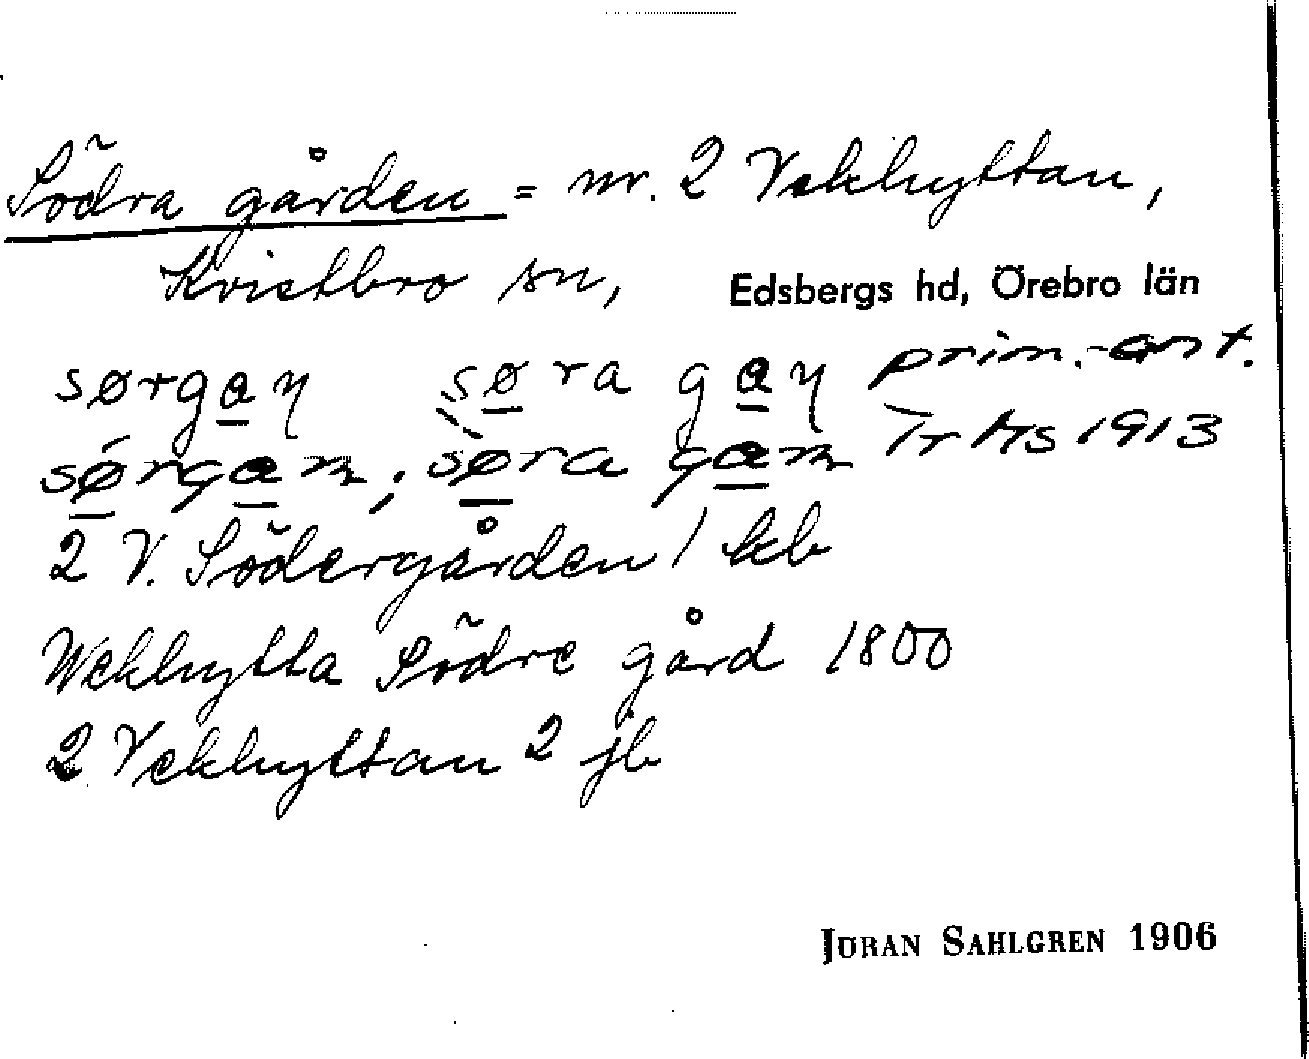 Södra gården = nr. 2 Vekhyttan,
Kvistbro sn, Edsbergs hd, Örebro län
sørgaŋ søra gaŋ prim.-ant.
sørgam; søra gam Tr Hs 1913
2 V. Södergården 1 kb
Wekhytta Södre gård 1800
2 Vekhyttan 2 jb
JÖRAN SAHLGREN 1906